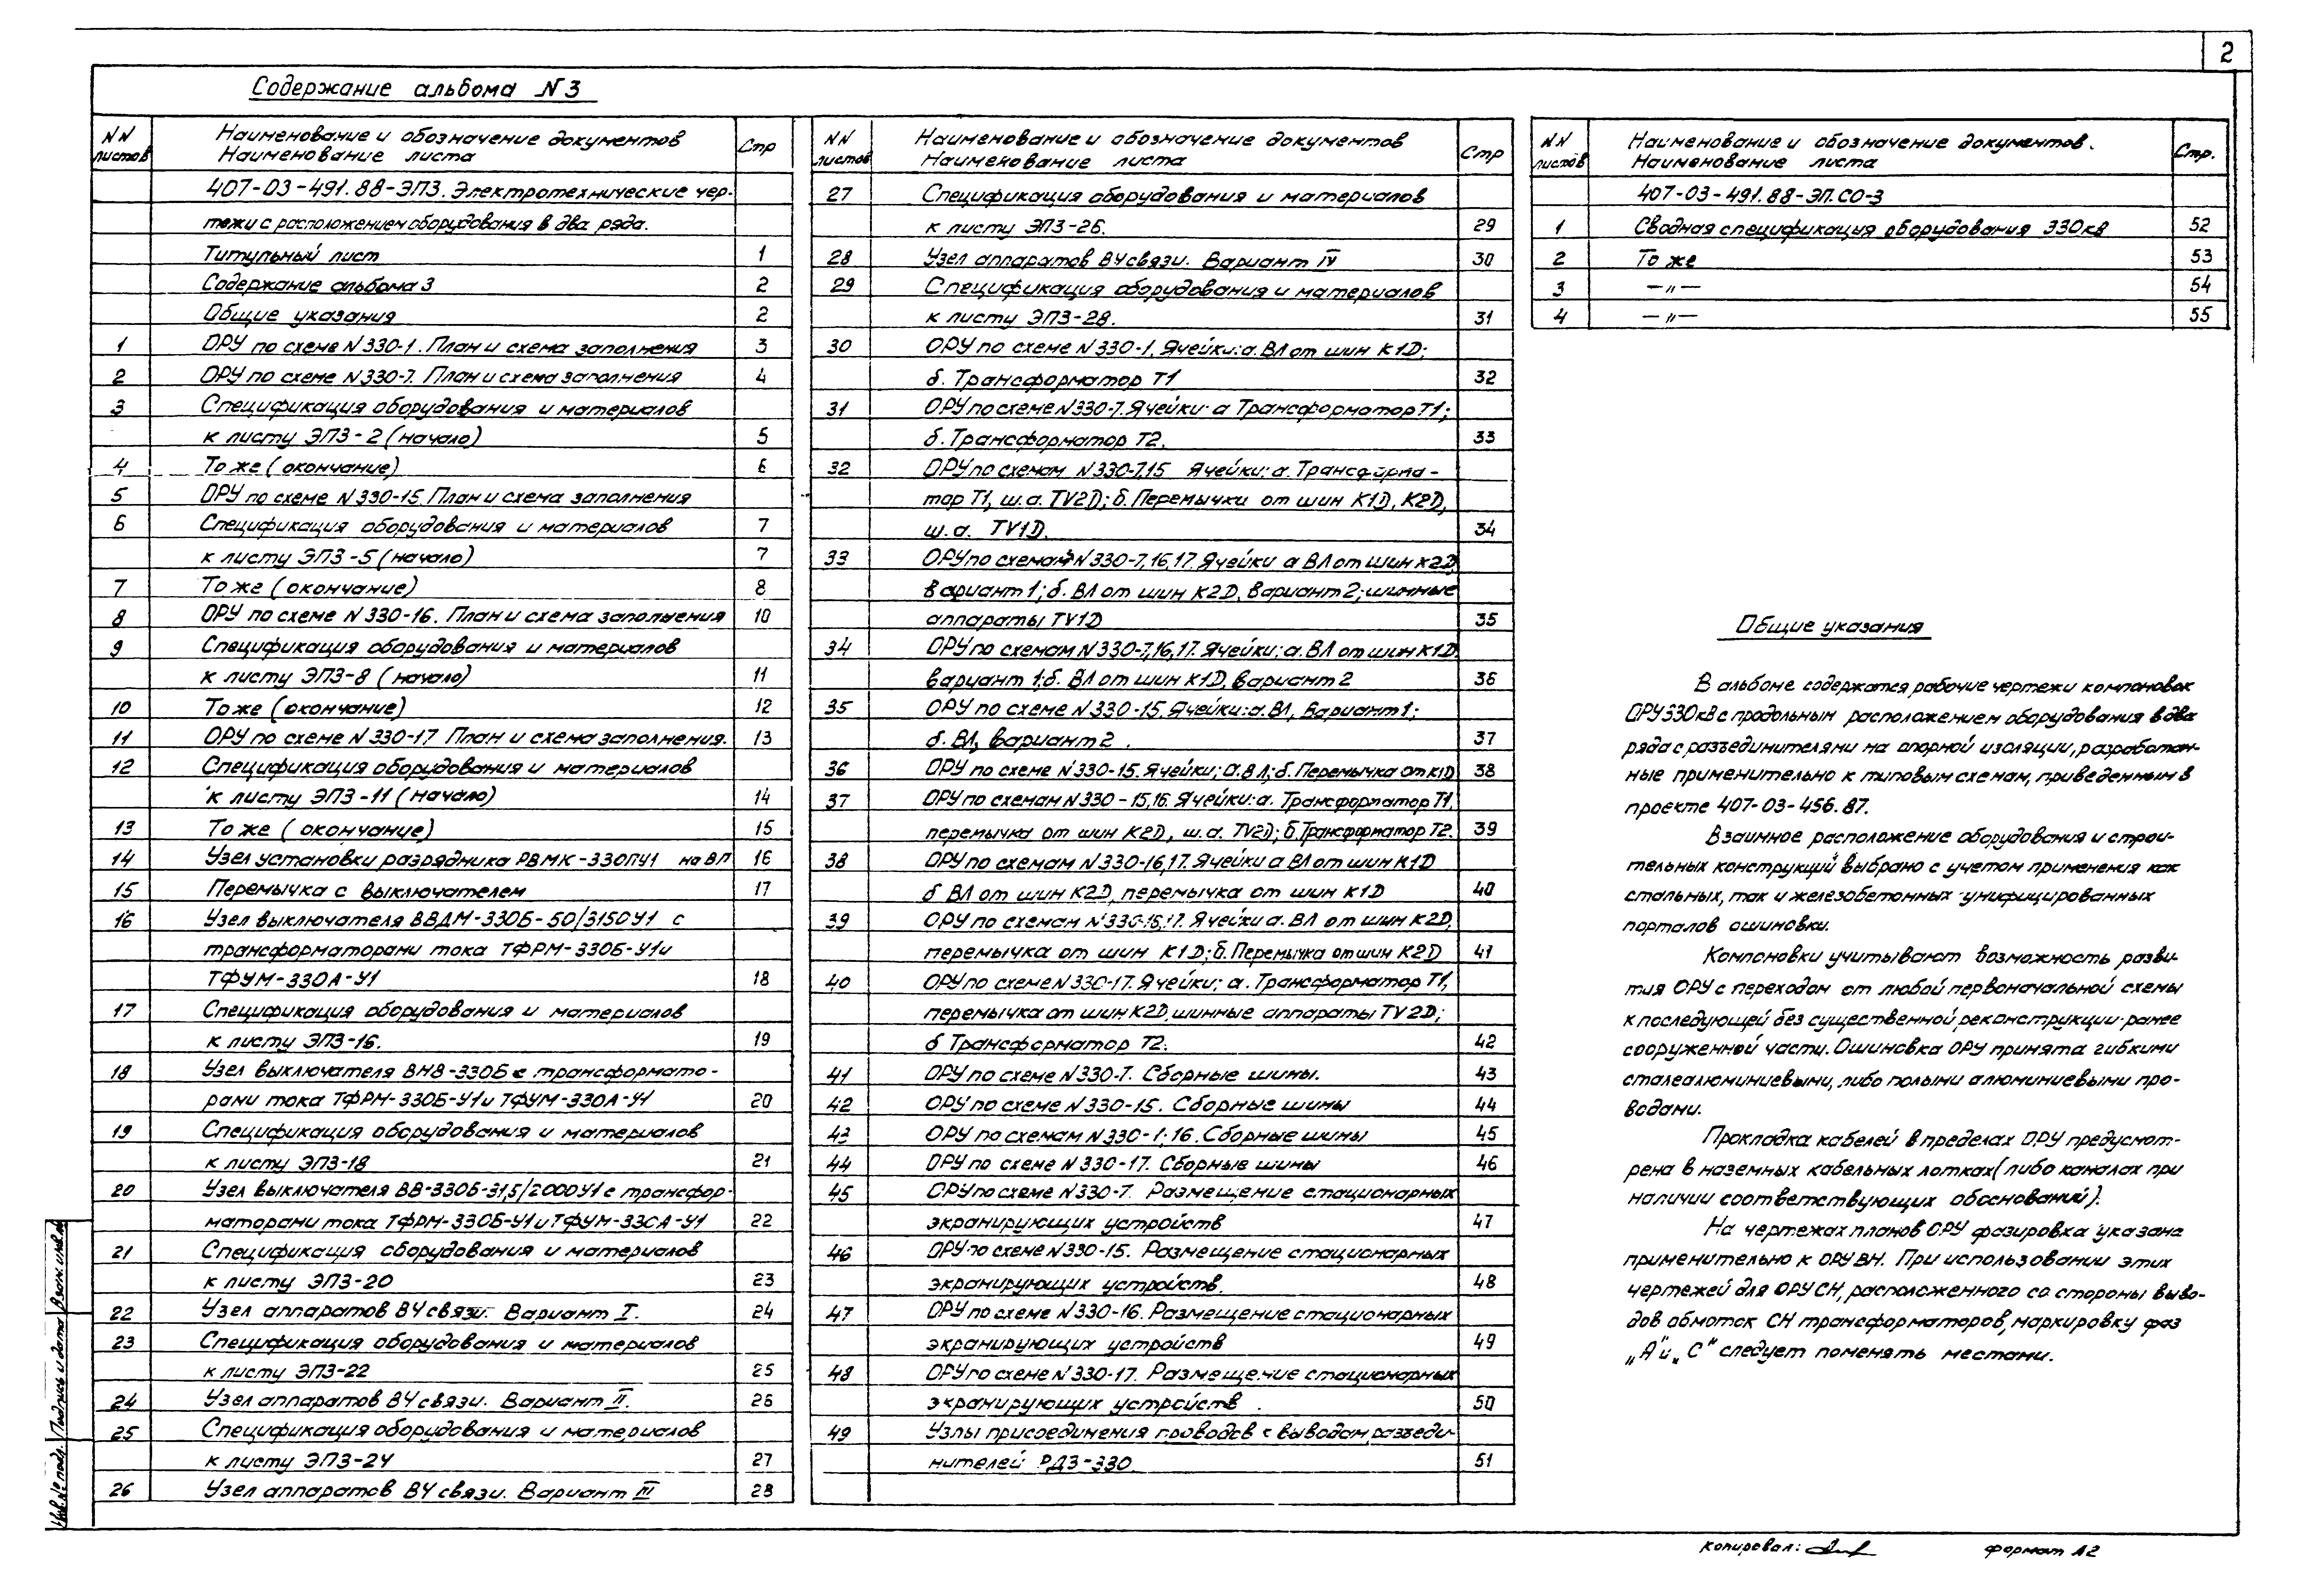 2
Содержание альбома N3
NN листов
Наименование и обозначение документов
Наименование листа
Стр
407-03-491.88-ЭП3. Электротехнические чер-
тежи с расположением оборудования в два ряда.
Титульный лист 1
Содержание альбома 3 2
Общие указания 2
1 ОРУ по схеме N330-1. План и схема заполнения 3
2 ОРУ по схеме N330-7. План и схема заполнения 4
3 Спецификация оборудования и материалов
к листу ЭП3-2 (начало) 5
4 То же (окончание) 6
5 ОРУ по схеме N330-15. План и схема заполнения
6 Спецификация оборудования и материалов 7
к листу ЭП3-5 (начало) 7
7 То же (окончание) 8
8 ОРУ по схеме N330-16. План и схема заполнения 10
9 Спецификация оборудования и материалов
к листу ЭП3-8 (начало) 11
10 То же (окончание) 12
11 ОРУ по схеме N330-17 План и схема заполнения. 13
12 Спецификация оборудования и материалов
к листу ЭП3-11 (начало) 14
13 То же (окончание) 15
14 Узел установки разрядника РВМК-330ПУ1 на ВЛ 16
15 Перемычка с выключателем 17
16 Узел выключателя ВВДМ-330Б-50/3150У1 с
трансформаторами тока ТФРМ-330Б-У1 и
ТФУМ-330А-У1 18
17 Спецификация оборудования и материалов
к листу ЭП3-16. 19
18 Узел выключателя ВНВ-330Б с трансформато-
рами тока ТФРМ-330Б-У1 и ТФУМ-330А-У1 20
19 Спецификация оборудования и материалов
к листу ЭП3-18 21
20 Узел выключателя ВВ-330Б-31,5/2000У1 с трансфор-
маторами тока ТФРМ-330Б-У1 и ТФУМ-330А-У1 22
21 Спецификация оборудования и материалов
к листу ЭП3-20 23
22 Узел аппаратов ВЧ связи. Вариант I. 24
23 Спецификация оборудования и материалов
к листу ЭП3-22 25
24 Узел аппаратов ВЧ связи. Вариант II. 26
25 Спецификация оборудования и материалов
к листу ЭП3-24 27
26 Узел аппаратов ВЧ связи. Вариант III 28
NN листов
Наименование и обозначение документов
Наименование листа
Стр
27 Спецификация оборудования и материалов
к листу ЭП3-26. 29
28 Узел аппаратов ВЧ связи. Вариант IV 30
29 Спецификация оборудования и материалов
к листу ЭП3-28. 31
30 ОРУ по схеме N330-1. Ячейки: а. ВЛ от шин К1D;
б. Трансформатор Т1 32
31 ОРУ по схеме N330-7. Ячейки: а Трансформатор Т1;
б. Трансформатор Т2. 33
32 ОРУ по схемам N330-7,15 Ячейки: а. Трансформа-
тор Т1, ш.а. TV2D; б. Перемычки от шин К1D, К2D,
ш.а. TV1D. 34
33 ОРУ по схемам N330-7,16,17. Ячейки а ВЛ от шин К2D,
вариант 1; б. ВЛ от шин К2D, вариант 2; шинные
аппараты TV1D 35
34 ОРУ по схемам N330-7,16,17. Ячейки: а. ВЛ от шин К1D.
вариант 1; б. ВЛ от шин К1D, вариант 2 36
35 ОРУ по схеме N330-15. Ячейки: а. ВЛ, вариант 1;
б. ВЛ, вариант 2. 37
36 ОРУ по схеме N330-15. Ячейки; а. ВЛ; б. Перемычка от К1D 38
37 ОРУ по схемам N330-15,16. Ячейки: а. Трансформатор Т1,
перемычка от шин К2D, ш.а. TV2D; б. Трансформатор Т2. 39
38 ОРУ по схемам N330-16,17. Ячейки а ВЛ от шин К1D
б ВЛ от шин К2D, перемычка от шин К1D 40
39 ОРУ по схемам N330-16,17. Ячейки а. ВЛ от шин К2D,
перемычка от шин К1D; б. Перемычка от шин К2D 41
40 ОРУ по схеме N330-17. Ячейки; а. Трансформатор Т1,
перемычка от шин К2D, шинные аппараты TV2D;
б Трансформатор Т2. 42
41 ОРУ по схеме N330-7. Сборные шины. 43
42 ОРУ по схеме N330-15. Сборные шины 44
43 ОРУ по схемам N330-1;16. Сборные шины 45
44 ОРУ по схеме N330-17. Сборные шины 46
45 ОРУ по схеме N330-7. Размещение стационарных
экранирующих устройств 47
46 ОРУ по схеме N330-15. Размещение стационарных
экранирующих устройств. 48
47 ОРУ по схеме N330-16. Размещение стационарных
экранирующих устройств 49
48 ОРУ по схеме N330-17. Размещение стационарных
экранирующих устройств. 50
49 Узлы присоединения проводов к выводам разъеди-
нителей РДЗ-330. 51
NN листов
Наименование и обозначение документов.
Наименование листа
Стр.
407-03-491.88-ЭП.СО-3
1 Сводная спецификация оборудования 330кв 52
2 То же 53
3 —"— 54
4 —"— 55
Общие указания
В альбоме содержатся рабочие чертежи компоновок
ОРУ 330кВ с продольным расположением оборудования в два
ряда с разъединителями на опорной изоляции, разработан-
ные применительно к типовым схемам, приведенным в
проекте 407-03-456.87.
Взаимное расположение оборудования и строи-
тельных конструкций выбрано с учетом применения как
стальных, так и железобетонных унифицированных
порталов ошиновки.
Компоновки учитывают возможность разви-
тия ОРУ с переходом от любой первоначальной схемы
к последующей без существенной реконструкции ранее
сооруженной части. Ошиновка ОРУ принята гибкими
сталеалюминиевыми, либо полыми алюминиевыми про-
водами.
Прокладка кабелей в пределах ОРУ предусмот-
рена в наземных кабельных лотках (либо каналах при
наличии соответствующих обоснований).
На чертежах планов ОРУ фазировка указана
применительно к ОРУ ВН. При использовании этих
чертежей для ОРУ СН, расположенного со стороны выво-
дов обмоток СН трансформаторов, маркировку фаз
„А" и „С" следует поменять местами.
Инв.№ подл. Подпись и дата Взам. инв.№
Копировал:
формат А2